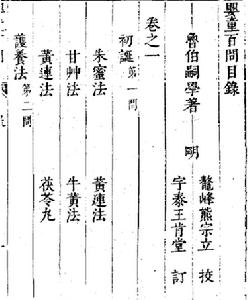 嬰童百問目錄
魯伯嗣學著 明
鰲峰熊宗立 挍
字泰王肯堂 訂
卷之一
初誕 第一問
朱蜜法 黃連法
甘艸法 牛黃法
黃連法 茯苓丸
護養法 第二問